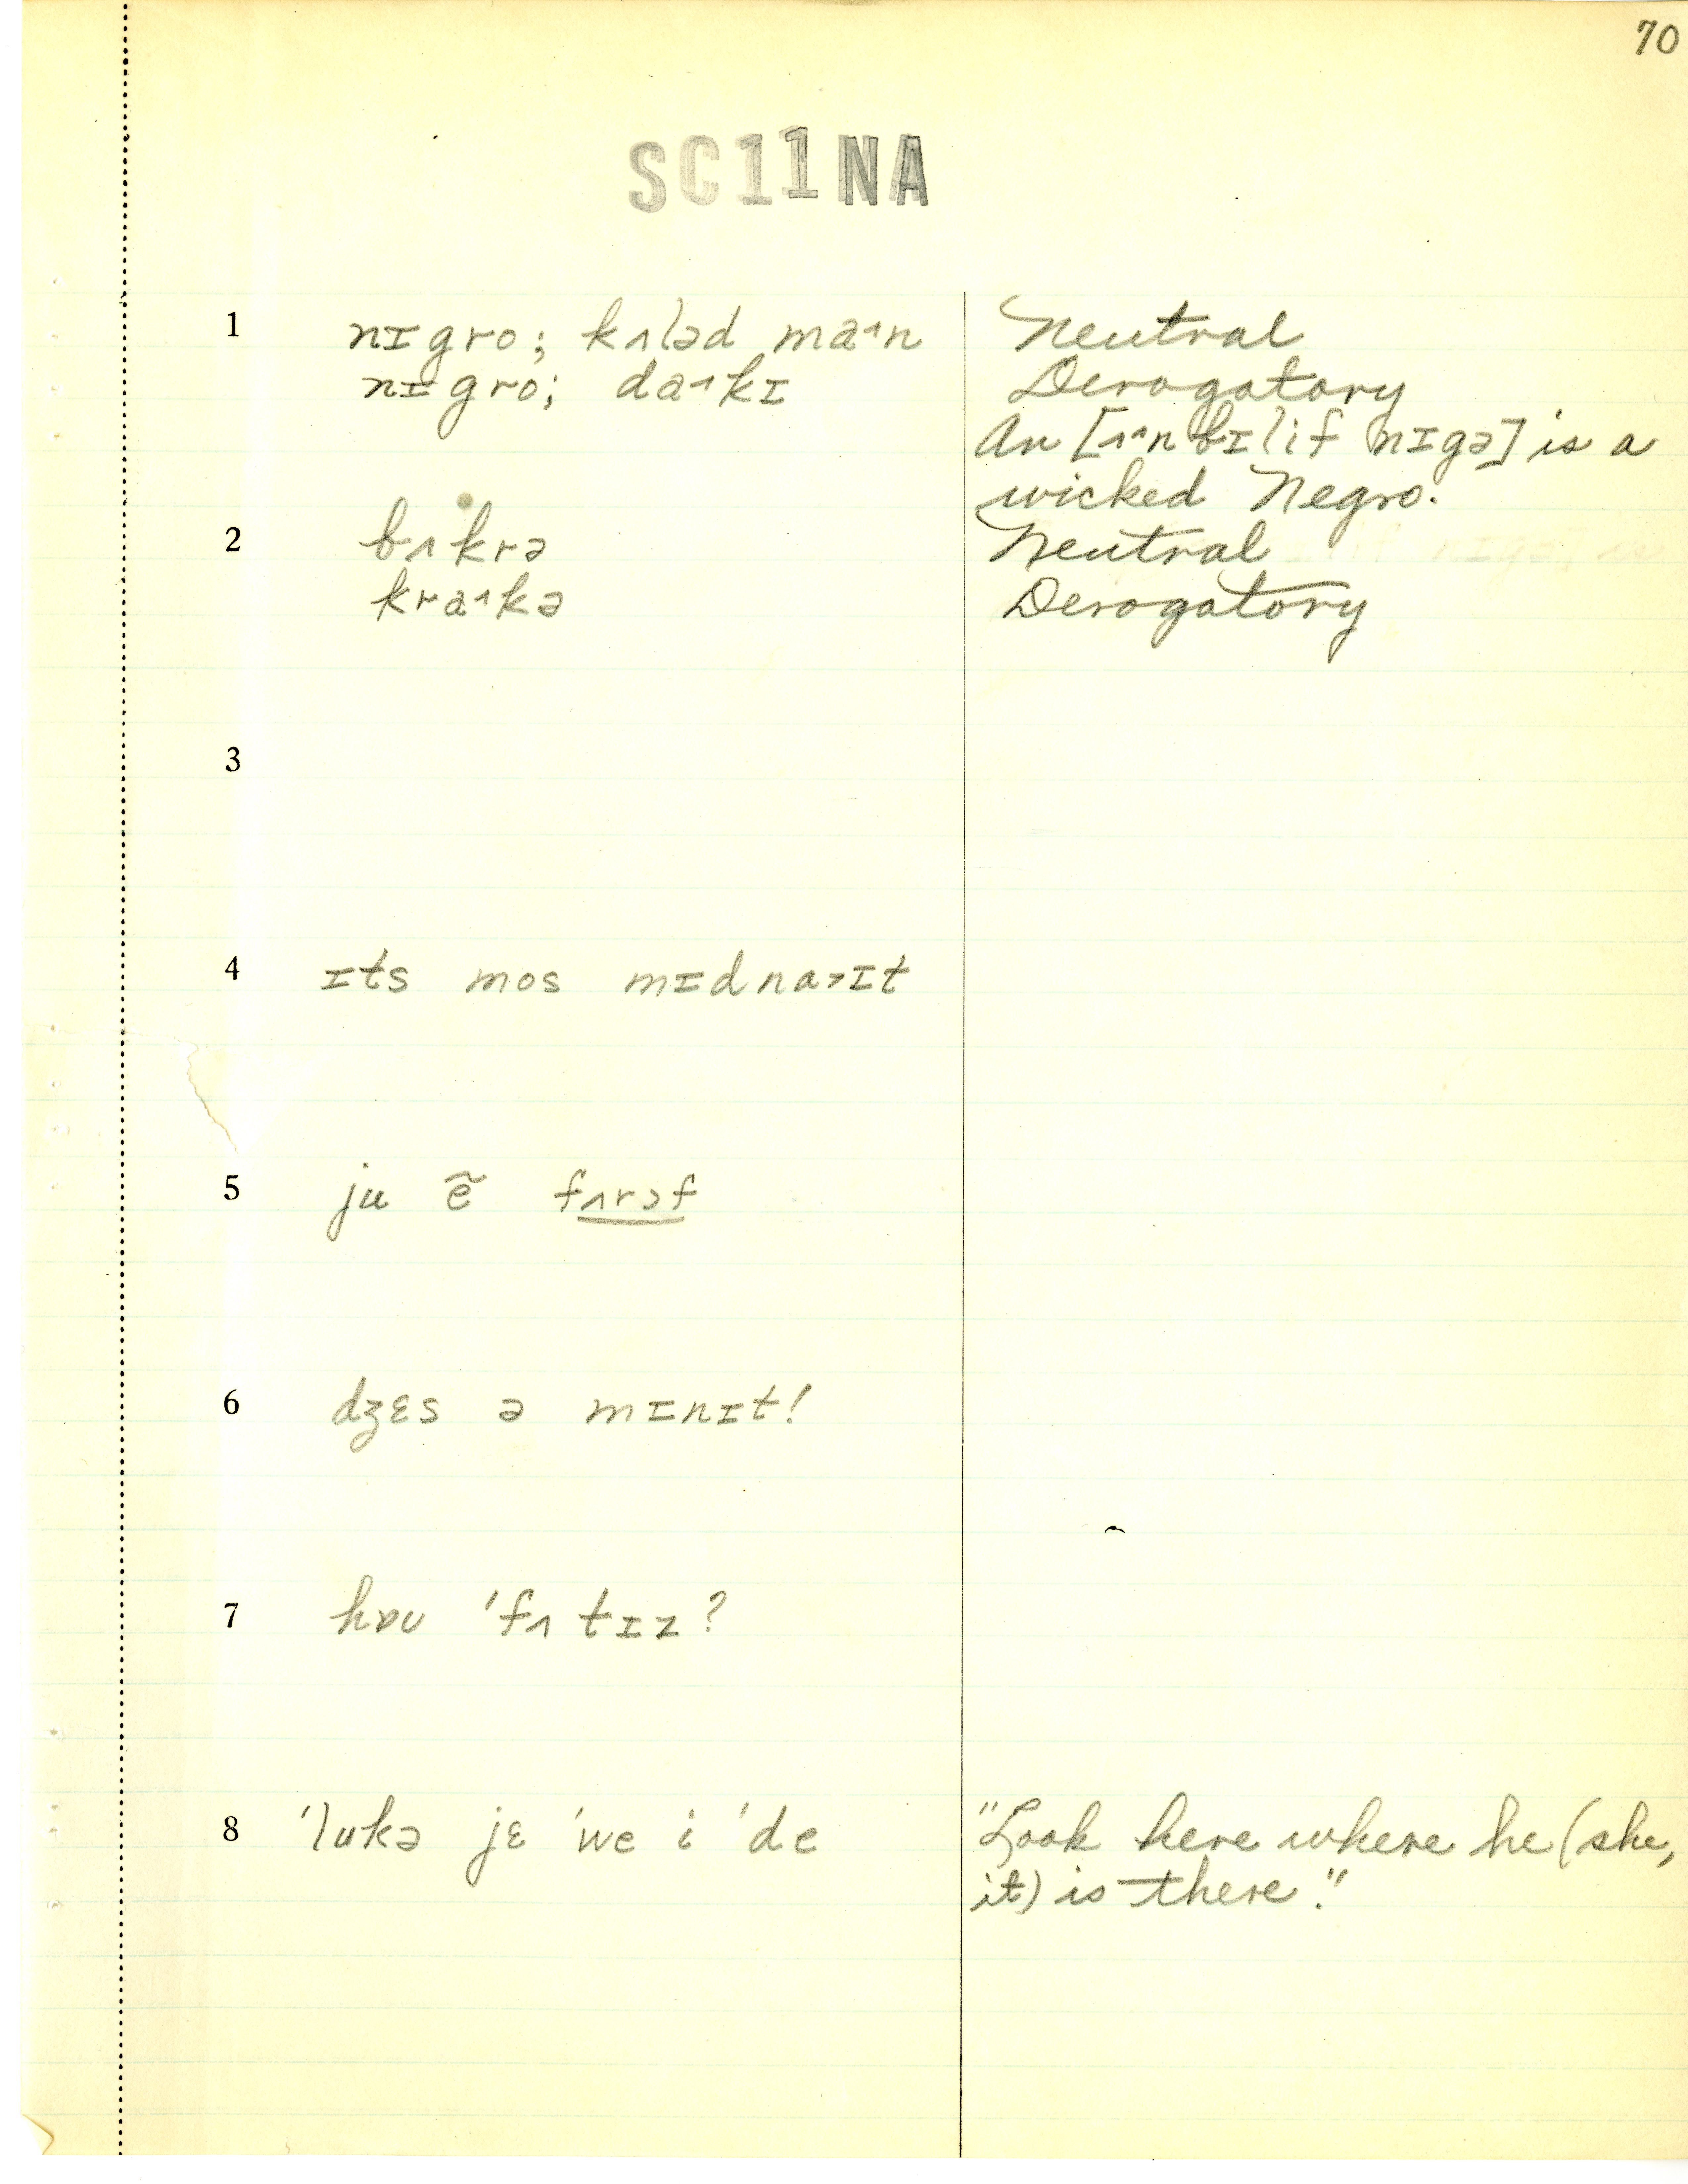 70
SC11NA
1 nɪgro; kʌləd ma˄n Neutral
nɪgro; da˄kɪ Derogatory
An [ʌ˄nbɪlif nɪgə] is a
wicked Negro.
2 bʌkrə Neutral
kra˄kə Derogatory
3
4 ɪts mos mɪdna˃ɪt
5 ju ẽ fʌrɔf
6 dʒɛs ə mɪnɪt!
7 hɒu 'fʌ tɪz?
8 'lukə jɛ 'we i 'de "Look here where he (she,
it) is there."